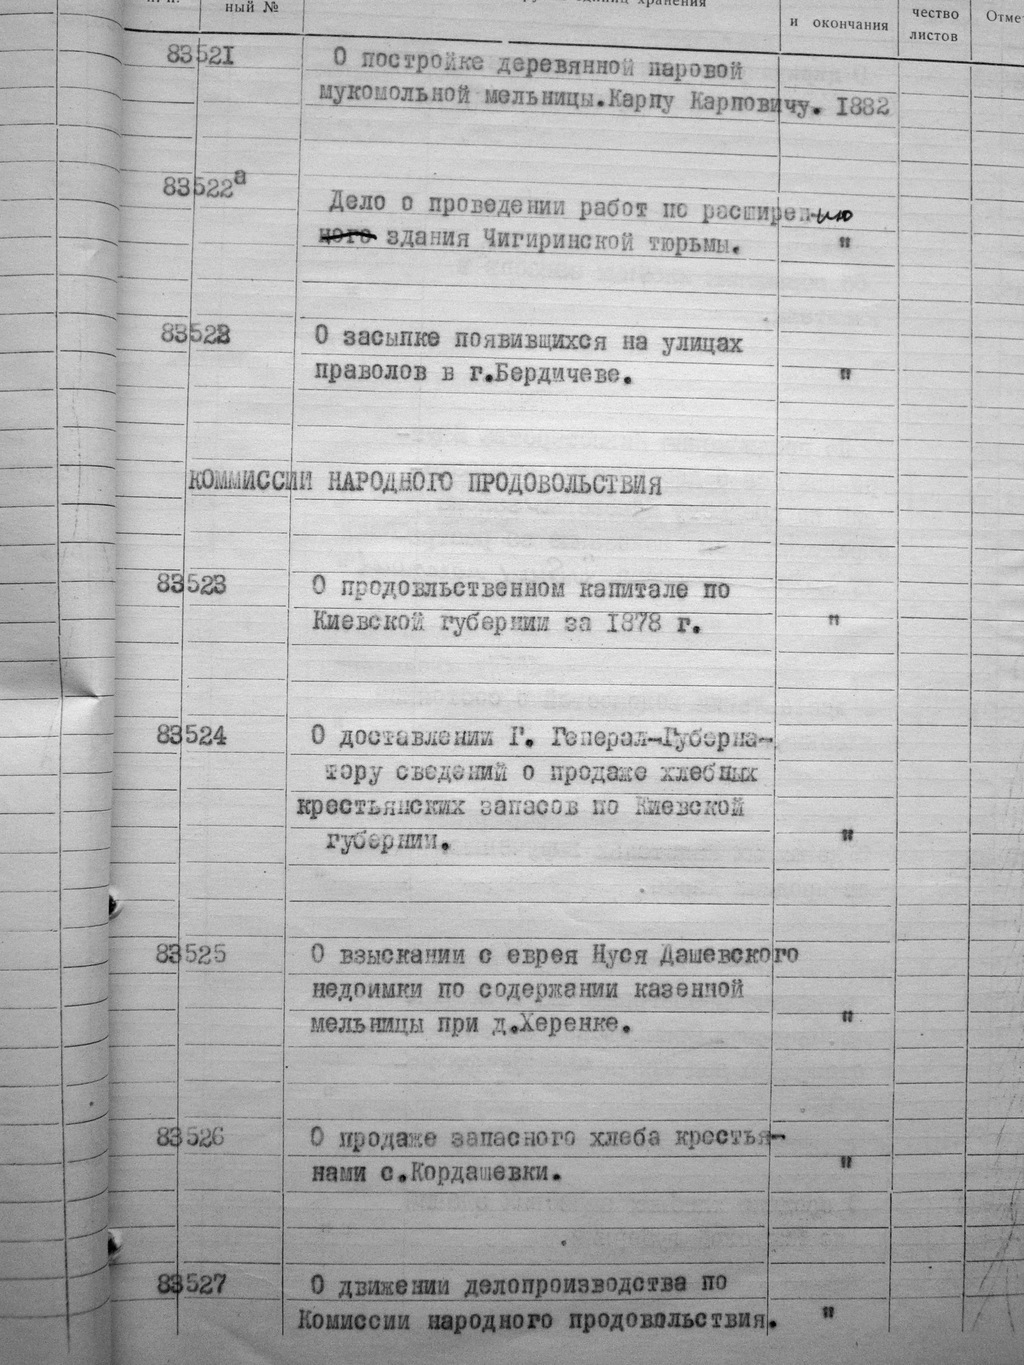 ный №
хранения
и окончания
чество
листов
Отме
83521 О постройке деревянной паровой
мукомольной мельницы.Карпу Карповичу. 1882
83522а
Дело о проведении работ по расширению
ного здания Чигиринской тюрьмы. "
83522 О засыпке появивщихся на улицах
праволов в г.Бердичеве. "
КОММИССИИ НАРОДНОГО ПРОДОВОЛЬСТВИЯ
83523 О продовльственном капитале по
Киевской губернии за 1878 г. "
83524 О доставлении Г. Генерал-Губерна-
тору сведений о продаже хлебных
крестьянских запасов по Киевской
губернии. "
83525 О взыскании с еврея Нуся Дашевского
недоимки по содержании казенной
мельницы при д.Херенке. "
83526 О продаже запасного хлеба крестья-
нами с.Кордашевки. "
83527 О движении делопроизводства по
Комиссии народного продовольствия. "